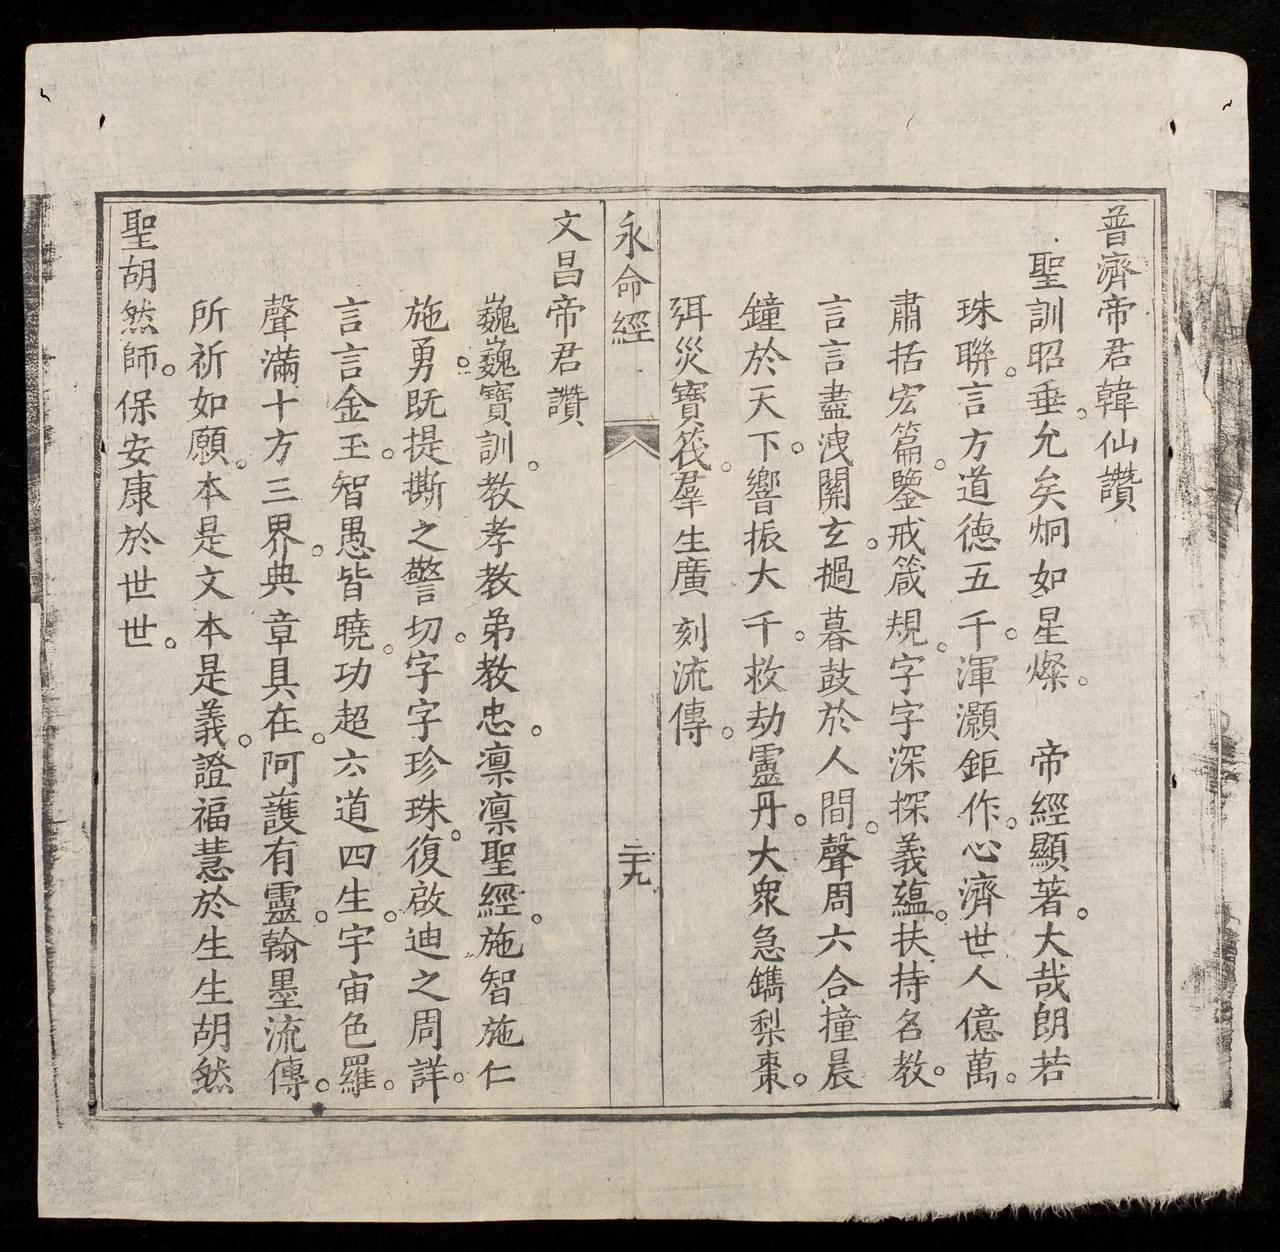 普濟帝君韓仙讚
聖訓昭垂。允矣炯如星燦。 帝經顯著。大哉朗若
珠聯。言方道德五千。渾灝鉅作。心濟世人億萬。
肅括宏篇。鑒戒箴規。字字深探義蘊。扶持名教。
言言盡洩關玄。撾暮鼓於人間。聲周六合。撞晨
鐘於天下。響振大千。救劫靈丹。大衆急鐫梨棗。
弭災寶筏。羣生廣刻流傳。
永命經
二十九
文昌帝君讚
巍巍寶訓。教孝教弟教忠。凛凛聖經。施智施仁
施勇。既提撕之警切。字字珍珠。復啟迪之周詳。
言言金玉。智愚皆曉。功超六道四生。宇宙色羅。
聲滿十方三界。典章具在。阿護有靈。翰墨流傳。
所祈如願。本是文本是義。證福慧於生生胡然
聖胡然師。保安康於世世。